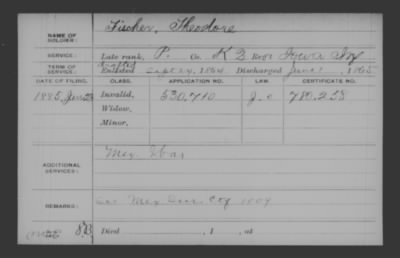 NAME OF SOLDIER: Fischer, Theodore
SERVICE: Late rank, P. Co. K 2 Reg't Iowa Inf
TERM OF SERVICE: drafted Enlisted Sept 24, 1864 Discharged June 1, 1865
DATE OF FILING. CLASS. APPLICATION NO. LAW. CERTIFICATE NO.
1885, Jan Invalid, 530,710 780,258
Widow,
Minor,
ADDITIONAL SERVICES: Mex. War
REMARKS: Mex
Died , 1 , at